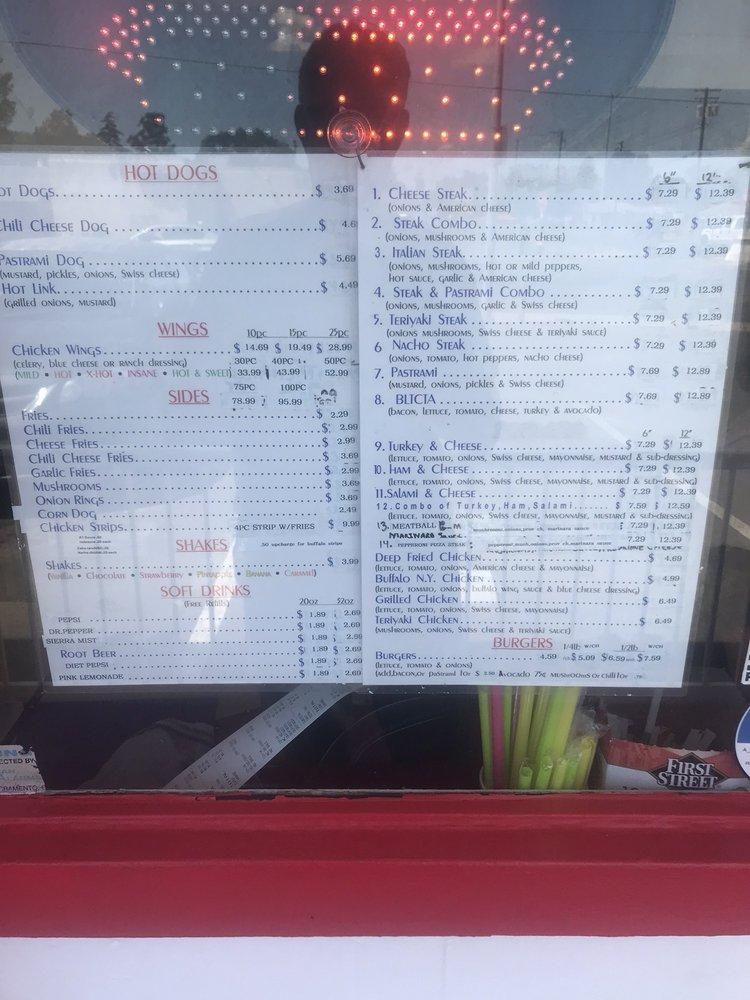 HOT DOGS
ot Dogs........ $ 3.69
hili Cheese Dog ........ $ 4.6
Pastrami Dog ........ $ 5.69
(mustard, pickles, onions, Swiss cheese)
Hot Link........ $ 4.49
(Grilled onions, mustard)
WINGS 10pc 15pc 25pc
Chicken Wings........ $ 14.69 $ 19.49 $ 28.99
(celery, blue cheese or ranch dressing) 30PC 40PC 50PC
(MILD • HOT • X-HOT • INSANE • HOT & SWEET) 33.99 43.99 52.99
75PC 100PC
SIDES 78.99 95.99
Fries........ $ 2.29
Chili Fries........ $ 2.99
Cheese Fries........ $ 2.99
Chili Cheese Fries........ $ 3.69
Garlic Fries........ $ 2.99
Mushrooms ........ $ 3.69
Onion Rings........ $ 3.69
Corn Dog ........ 2.49
Chicken Strips........ 4PC STRIP W/FRIES $ 9.99
SHAKES .50 upcharge for buffalo strips
Shakes........ $ 3.99
(Vanilla • Chocolate • Strawberry • Pineapple • Banana • Caramel)
SOFT DRINKS
(Free Refills) 20oz 32oz
PEPSI ........ $ 1.89 $ 2.69
DR.PEPPER ........ $ 1.89 $ 2.69
SIERRA MIST ........ $ 1.89 $ 2.69
Root Beer ........ $ 1.89 $ 2.69
DIET PEPSI ........ $ 1.89 $ 2.69
PINK LEMONADE ........ $ 1.89 $ 2.69
6" 12"
1. Cheese Steak........ $ 7.29 $ 12.39
(onions & American cheese)
2. Steak Combo........ $ 7.29 $ 12.39
(onions, mushrooms & American cheese)
3. Italian Steak........ $ 7.29 $ 12.39
(onions, mushrooms, hot or mild peppers,
hot sauce, garlic & American cheese)
4. Steak & Pastrami Combo ........ $ 7.29 $ 12.39
(onions, mushrooms, garlic & Swiss cheese)
5. Teriyaki Steak ........ $ 7.29 $ 12.39
(onions mushrooms, Swiss cheese & teriyaki sauce)
6 Nacho Steak ........ $ 7.29 $ 12.39
(onions, tomato, hot peppers, nacho cheese)
7. Pastrami ........ $ 7.69 $ 12.89
(mustard, onions, pickles & Swiss cheese)
8. BLTCTA ........ $ 7.69 $ 12.89
(bacon, lettuce, tomato, cheese, turkey & avocado)
6" 12"
9. Turkey & Cheese........ $ 7.29 $ 12.39
(lettuce, tomato, onions, Swiss cheese, mayonnaise, mustard & sub-dressing)
10. Ham & Cheese ........ $ 7.29 $ 12.39
(lettuce, tomato, onions, Swiss cheese, mayonnaise, mustard & sub-dressing)
11. Salami & Cheese ........ $ 7.29 $ 12.39
12. Combo of Turkey, Ham, Salami........ $ 7.59 $ 12.59
(lettuce, tomato, onions, Swiss cheese, mayonnaise, mustard & sub-dressing)
13. MEATBALL 7.29 12.39
MARINARA SAUCE
14. PEPPERONI PIZZA STEAK 7.29 12.39
Deep Fried Chicken ........ $ 4.69
(lettuce, tomato, onions, American cheese & mayonnaise)
Buffalo N.Y. Chicken ........ $ 4.99
(lettuce, tomato, onions, buffalo wing sauce & blue cheese dressing)
Grilled Chicken ........ $ 6.49
(lettuce, tomato, onions, Swiss cheese, mayonnaise)
Teriyaki Chicken........ $ 6.49
(mushrooms, onions, Swiss cheese & teriyaki sauce)
BURGERS 1/4lb W/CH 1/2lb W/CH
Burgers........ 4.59 $ 5.09 $6.59 $7.59
(lettuce, tomato & onions)
(add,BACON,Or paStrami for $ 2.50 Avocado 75¢ MUShrOOmS Or Chili for .75
FIRST
STREET